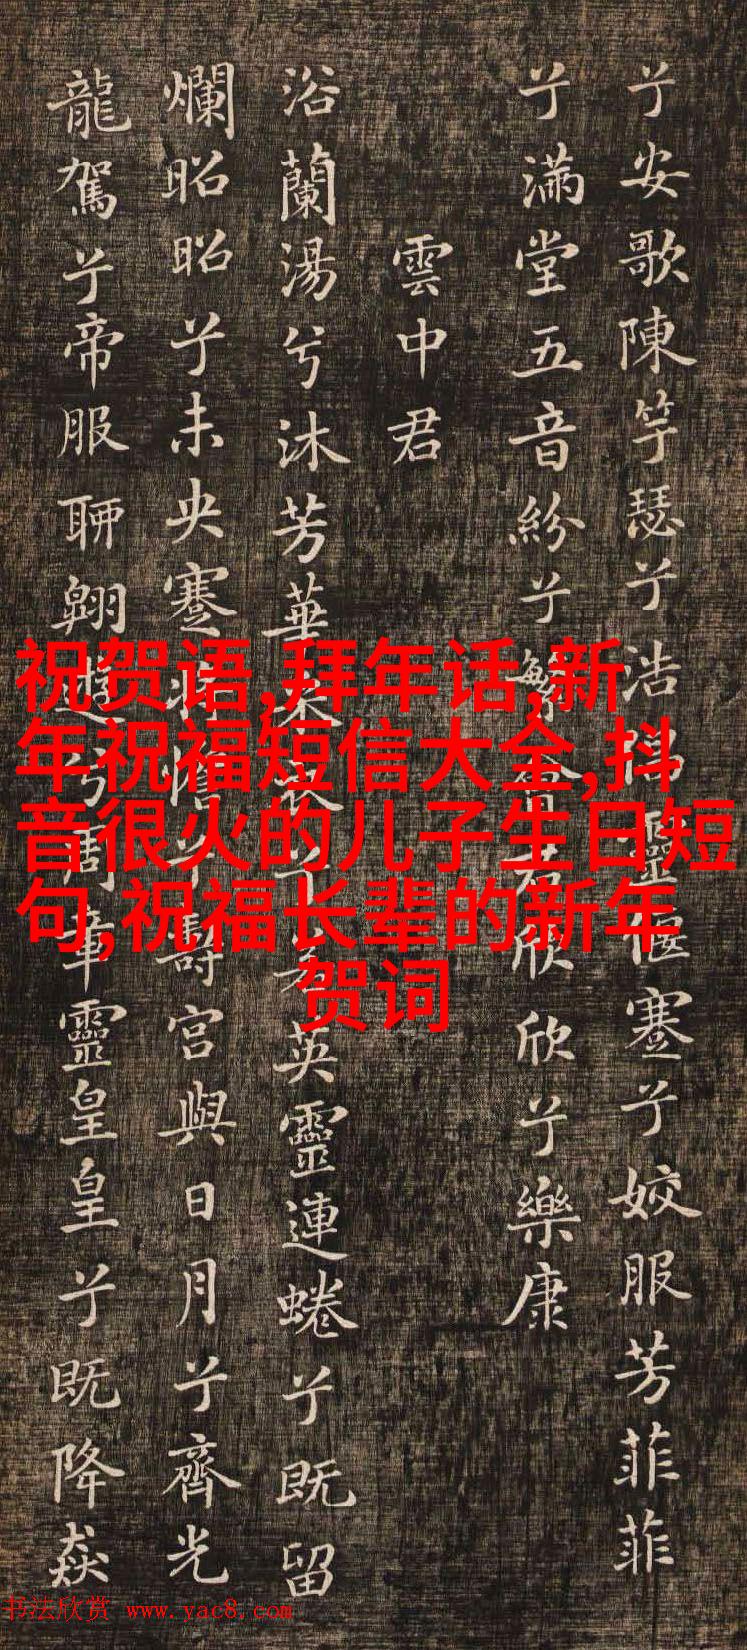 兮安歌陳竽瑟兮浩倡靈偃蹇兮姣服芳菲菲
兮滿堂五音紛兮繁會君欣欣兮樂康
雲中君
浴蘭湯兮沐芳華采衣兮若英靈連蜷兮既留
爛昭昭兮未央蹇將憺兮壽宮與日月兮齊光
龍駕兮帝服聊翱遊兮周章靈皇皇兮既降猋
祝贺语,拜年话,新
年祝福短信大全,抖
音很火的儿子生日短
句,祝福长辈的新年
贺词
书法欣赏 www.yac8.com